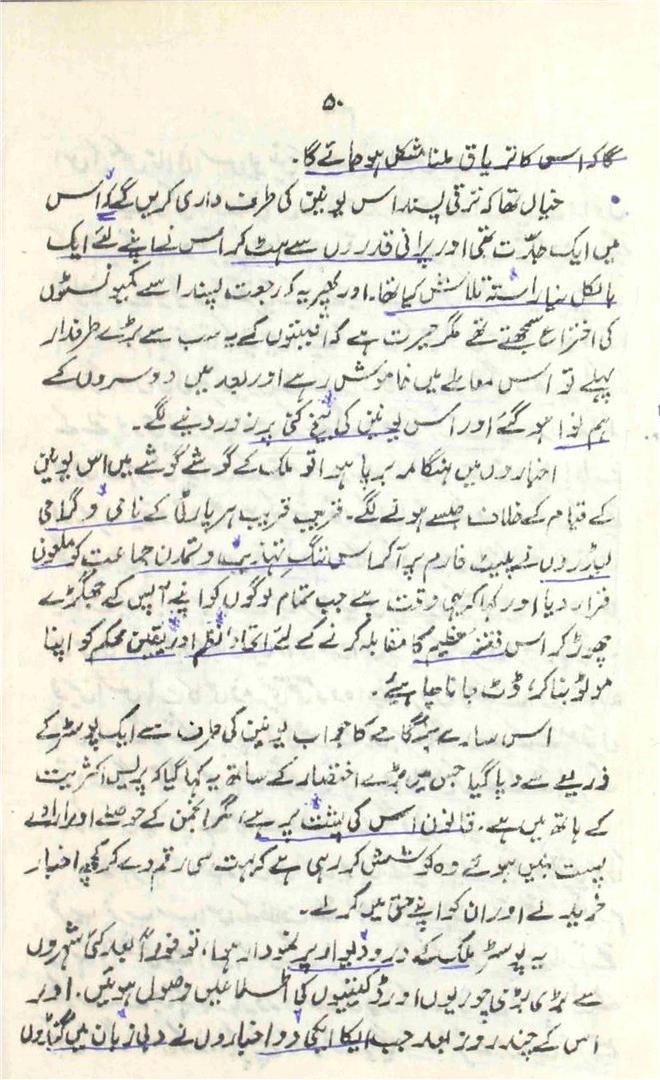 ۵۰
گا کہ اس کا تریاق ملنا مشکل ہو جائے گا۔
خیال تھا کہ ترقی پسند اس یونین کی طرف داری کریں گے کہ اس
میں ایک جدّت تھی اور پرانی قدروں سے ہٹ کر اس نے اپنے لئے ایک
بالکل نیا راستہ تلاش کیا تھا۔ اور پھر یہ کہ رجعت پسند اسے کمیونسٹوں
کی اختراع سمجھتے تھے مگر حیرت ہے کہ اقلیتوں کے یہ سب سے بڑے طرفدار
پہلے تو اس معاملے میں خاموش رہے اور بعد میں دوسروں کے
ہم نوا ہو گئے اور اس یونین کی بیخ کنی پر زور دینے لگے۔
اخباروں میں ہنگامہ برپا ہوا تو ملک کے گوشے گوشے میں اس یونین
کے قیام کے خلاف جلسے ہونے لگے۔ قریب قریب ہر پارٹی کے نامی و گرامی
لیڈروں نے پلیٹ فارم پر آ کر اس ننگِ تہذیب و تمدن جماعت کو ملعون
قرار دیا اور کہا کہ یہی وقت ہے جب تمام لوگوں کو اپنے آپس کے جھگڑے
چھوڑ کر اس فتنہ عظیم کا مقابلہ کرنے کے لئے اتحاد، نظم اور یقین محکم کو اپنا
موٹو بنا کر، ڈٹ جانا چاہیئے۔
اس سارے ہنگامے کا جواب یونین کی طرف سے ایک پوسٹر کے
ذریعے سے دیا گیا جس میں بڑے اختصار کے ساتھ یہ کہا گیا کہ پریس اکثریت
کے ہاتھ میں ہے۔ قانون اس کی پشت پر ہے، مگر انجمن کے حوصلے اور ارادے
پست نہیں ہوئے وہ کوشش کر رہی ہے کہ بہت سی رقم دے کر کچھ اخبار
خرید لے اور ان کو اپنے حق میں کر لے۔
یہ پوسٹر ملک کے در و دیوار پر نمودار ہوا، تو فوراً بعد کئی شہروں
سے بڑی بڑی چوریوں اور ڈکیتیوں کی اطلاعیں وصول ہوئیں۔ اور
اس کے چند روز بعد جب ایکا ایکی دو اخباروں نے دبی زبان میں گناہوں